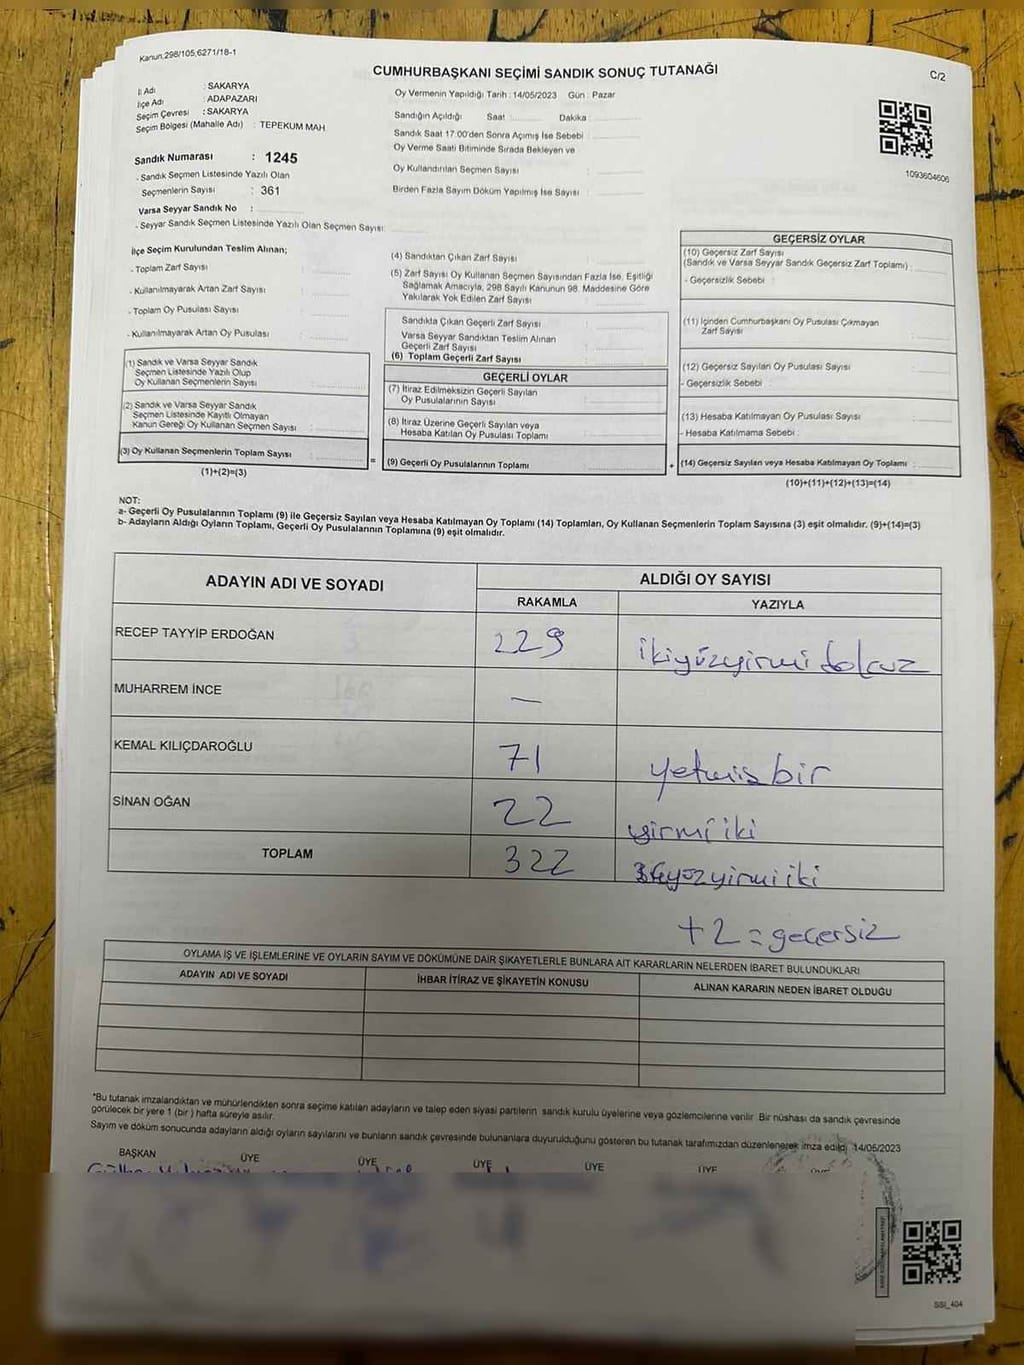 Kanun,298/105;6271/18-1
CUMHURBAŞKANI SEÇİMİ SANDIK SONUÇ TUTANAĞI
C/2
İl Adı : SAKARYA
İlçe Adı : ADAPAZARI
Seçim Çevresi : SAKARYA
Seçim Bölgesi (Mahalle Adı) : TEPEKUM MAH
Sandık Numarası : 1245
- Sandık Seçmen Listesinde Yazılı Olan
Seçmenlerin Sayısı : 361
Varsa Seyyar Sandık No :
- Seyyar Sandık Seçmen Listesinde Yazılı Olan Seçmen Sayısı:
Oy Vermenin Yapıldığı Tarih : 14/05/2023 Gün : Pazar
Sandığın Açıldığı: Saat Dakika :
Sandık Saat 17:00'den Sonra Açımış İse Sebebi :
Oy Verme Saati Bitiminde Sırada Bekleyen ve
Oy Kullandırılan Seçmen Sayısı :
Birden Fazla Sayım Döküm Yapılmış İse Sayısı :
1093604606
İlçe Seçim Kurulundan Teslim Alınan;
- Toplam Zarf Sayısı :
- Kullanılmayarak Artan Zarf Sayısı :
- Toplam Oy Pusulası Sayısı :
- Kullanılmayarak Artan Oy Pusulası :
(1) Sandık ve Varsa Seyyar Sandık
Seçmen Listesinde Yazılı Olup
Oy Kullanan Seçmenlerin Sayısı :
(2) Sandık ve Varsa Seyyar Sandık
Seçmen Listesinde Kayıtlı Olmayan
Kanun Gereği Oy Kullanan Seçmen Sayısı :
(3) Oy Kullanan Seçmenlerin Toplam Sayısı :
(1)+(2)=(3)
(4) Sandıktan Çıkan Zarf Sayısı :
(5) Zarf Sayısı Oy Kullanan Seçmen Sayısından Fazla İse, Eşitliği
Sağlamak Amacıyla, 298 Sayılı Kanunun 98. Maddesine Göre
Yakılarak Yok Edilen Zarf Sayısı :
Sandıkta Çıkan Geçerli Zarf Sayısı :
Varsa Seyyar Sandıktan Teslim Alınan
Geçerli Zarf Sayısı :
(6) Toplam Geçerli Zarf Sayısı :
GEÇERLİ OYLAR
(7) İtiraz Edilmeksizin Geçerli Sayılan
Oy Pusulalarının Sayısı :
(8) İtiraz Üzerine Geçerli Sayılan veya
Hesaba Katılan Oy Pusulası Toplamı :
= (9) Geçerli Oy Pusulalarının Toplamı :
GEÇERSİZ OYLAR
(10) Geçersiz Zarf Sayısı
(Sandık ve Varsa Seyyar Sandık Geçersiz Zarf Toplamı) :
- Geçersizlik Sebebi :
(11) İçinden Cumhurbaşkanı Oy Pusulası Çıkmayan
Zarf Sayısı :
(12) Geçersiz Sayılan Oy Pusulası Sayısı :
- Geçersizlik Sebebi :
(13) Hesaba Katılmayan Oy Pusulası Sayısı :
- Hesaba Katılmama Sebebi :
+ (14) Geçersiz Sayılan veya Hesaba Katılmayan Oy Toplamı :
(10)+(11)+(12)+(13)=(14)
NOT:
a- Geçerli Oy Pusulalarının Toplamı (9) ile Geçersiz Sayılan veya Hesaba Katılmayan Oy Toplamı (14) Toplamları, Oy Kullanan Seçmenlerin Toplam Sayısına (3) eşit olmalıdır. (9)+(14)=(3)
b- Adayların Aldığı Oyların Toplamı, Geçerli Oy Pusulalarının Toplamına (9) eşit olmalıdır.
ADAYIN ADI VE SOYADI
ALDIĞI OY SAYISI
RAKAMLA YAZIYLA
RECEP TAYYİP ERDOĞAN 229 ikiyüzyirmi dokuz
MUHARREM İNCE —
KEMAL KILIÇDAROĞLU 71 yetmiş bir
SİNAN OĞAN 22 yirmi iki
TOPLAM 322 yirmi iki
+2 = geçersiz
OYLAMA İŞ VE İŞLEMLERİNE VE OYLARIN SAYIM VE DÖKÜMÜNE DAİR ŞİKAYETLERLE BUNLARA AİT KARARLARIN NELERDEN İBARET BULUNDUKLARI
ADAYIN ADI VE SOYADI İHBAR İTİRAZ VE ŞİKAYETİN KONUSU ALINAN KARARIN NEDEN İBARET OLDUĞU
*Bu tutanak imzalandıktan ve mühürlendikten sonra seçime katılan adayların ve talep eden siyasi partilerin sandık kurulu üyelerine veya gözlemcilerine verilir. Bir nüshası da sandık çevresinde
görülecek bir yere 1 (bir ) hafta süreyle asılır.
Sayım ve döküm sonucunda adayların aldığı oyların sayılarını ve bunların sandık çevresinde bulunanlara duyurulduğunu gösteren bu tutanak tarafımızdan düzenlenerek imza edildi. 14/05/2023
BAŞKAN ÜYE ÜYE ÜYE ÜYE ÜYE ÜYE
SSI_404